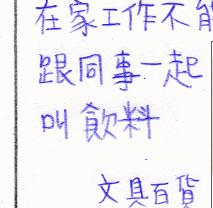 在家工作不能
跟同事一起
叫飲料
文具百貨